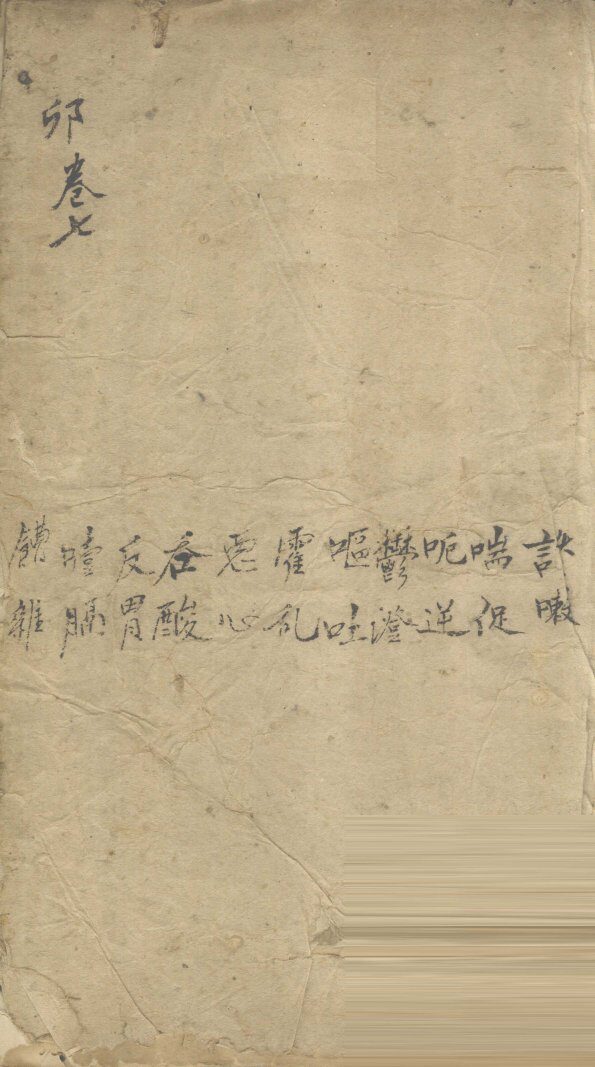 卯卷七
嗽
喘促
呃逆
鬱澄
嘔吐
霍乱
恶心
吞酸
反胃
噎膈
雜